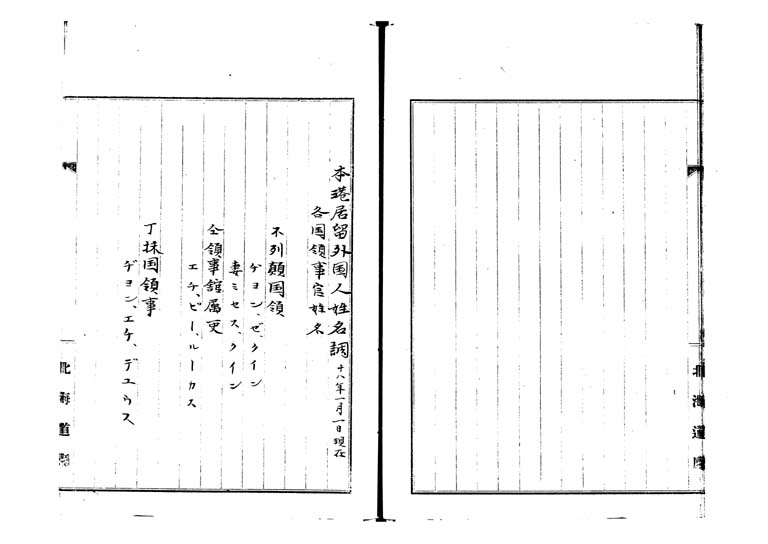 本港居留外国人姓名調 十八年一月一日現在
各国領事官姓名
不列顛国領
ケヨン、ゼ、クイン
妻ミセス、クイン
仝領事舘属吏
エチ、ピー、ルーカス
丁抹国領事
ヂヨン、エケ、デユウス
北海道庁
北海道庁